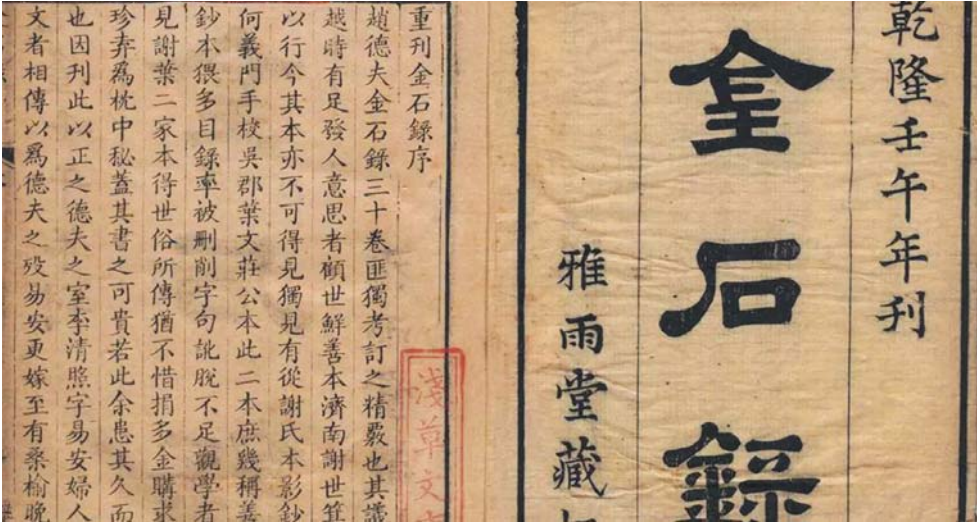 乾隆壬午年刊
金石錄
雅雨堂藏
重刊金石錄序
趙德夫金石錄三十卷匪獨考訂之精覈也其議
越時有足發人意思者顧世鮮善本濟南謝世箕
以行今其本亦不可得見獨見有從謝氏本影鈔
何義門手校吳郡葉文莊公本此二本庶幾稱善
鈔本猥多目錄率被刪削字句訛脫不足觀學者
見謝葉二家本得世俗所傳猶不惜捐多金購求
珍弆爲枕中秘蓋其書之可貴若此余患其久而
也因刊此以正之德夫之室李清照字易安婦人
文者相傳以爲德夫之歿易安更嫁至有桑榆晚
淺草文